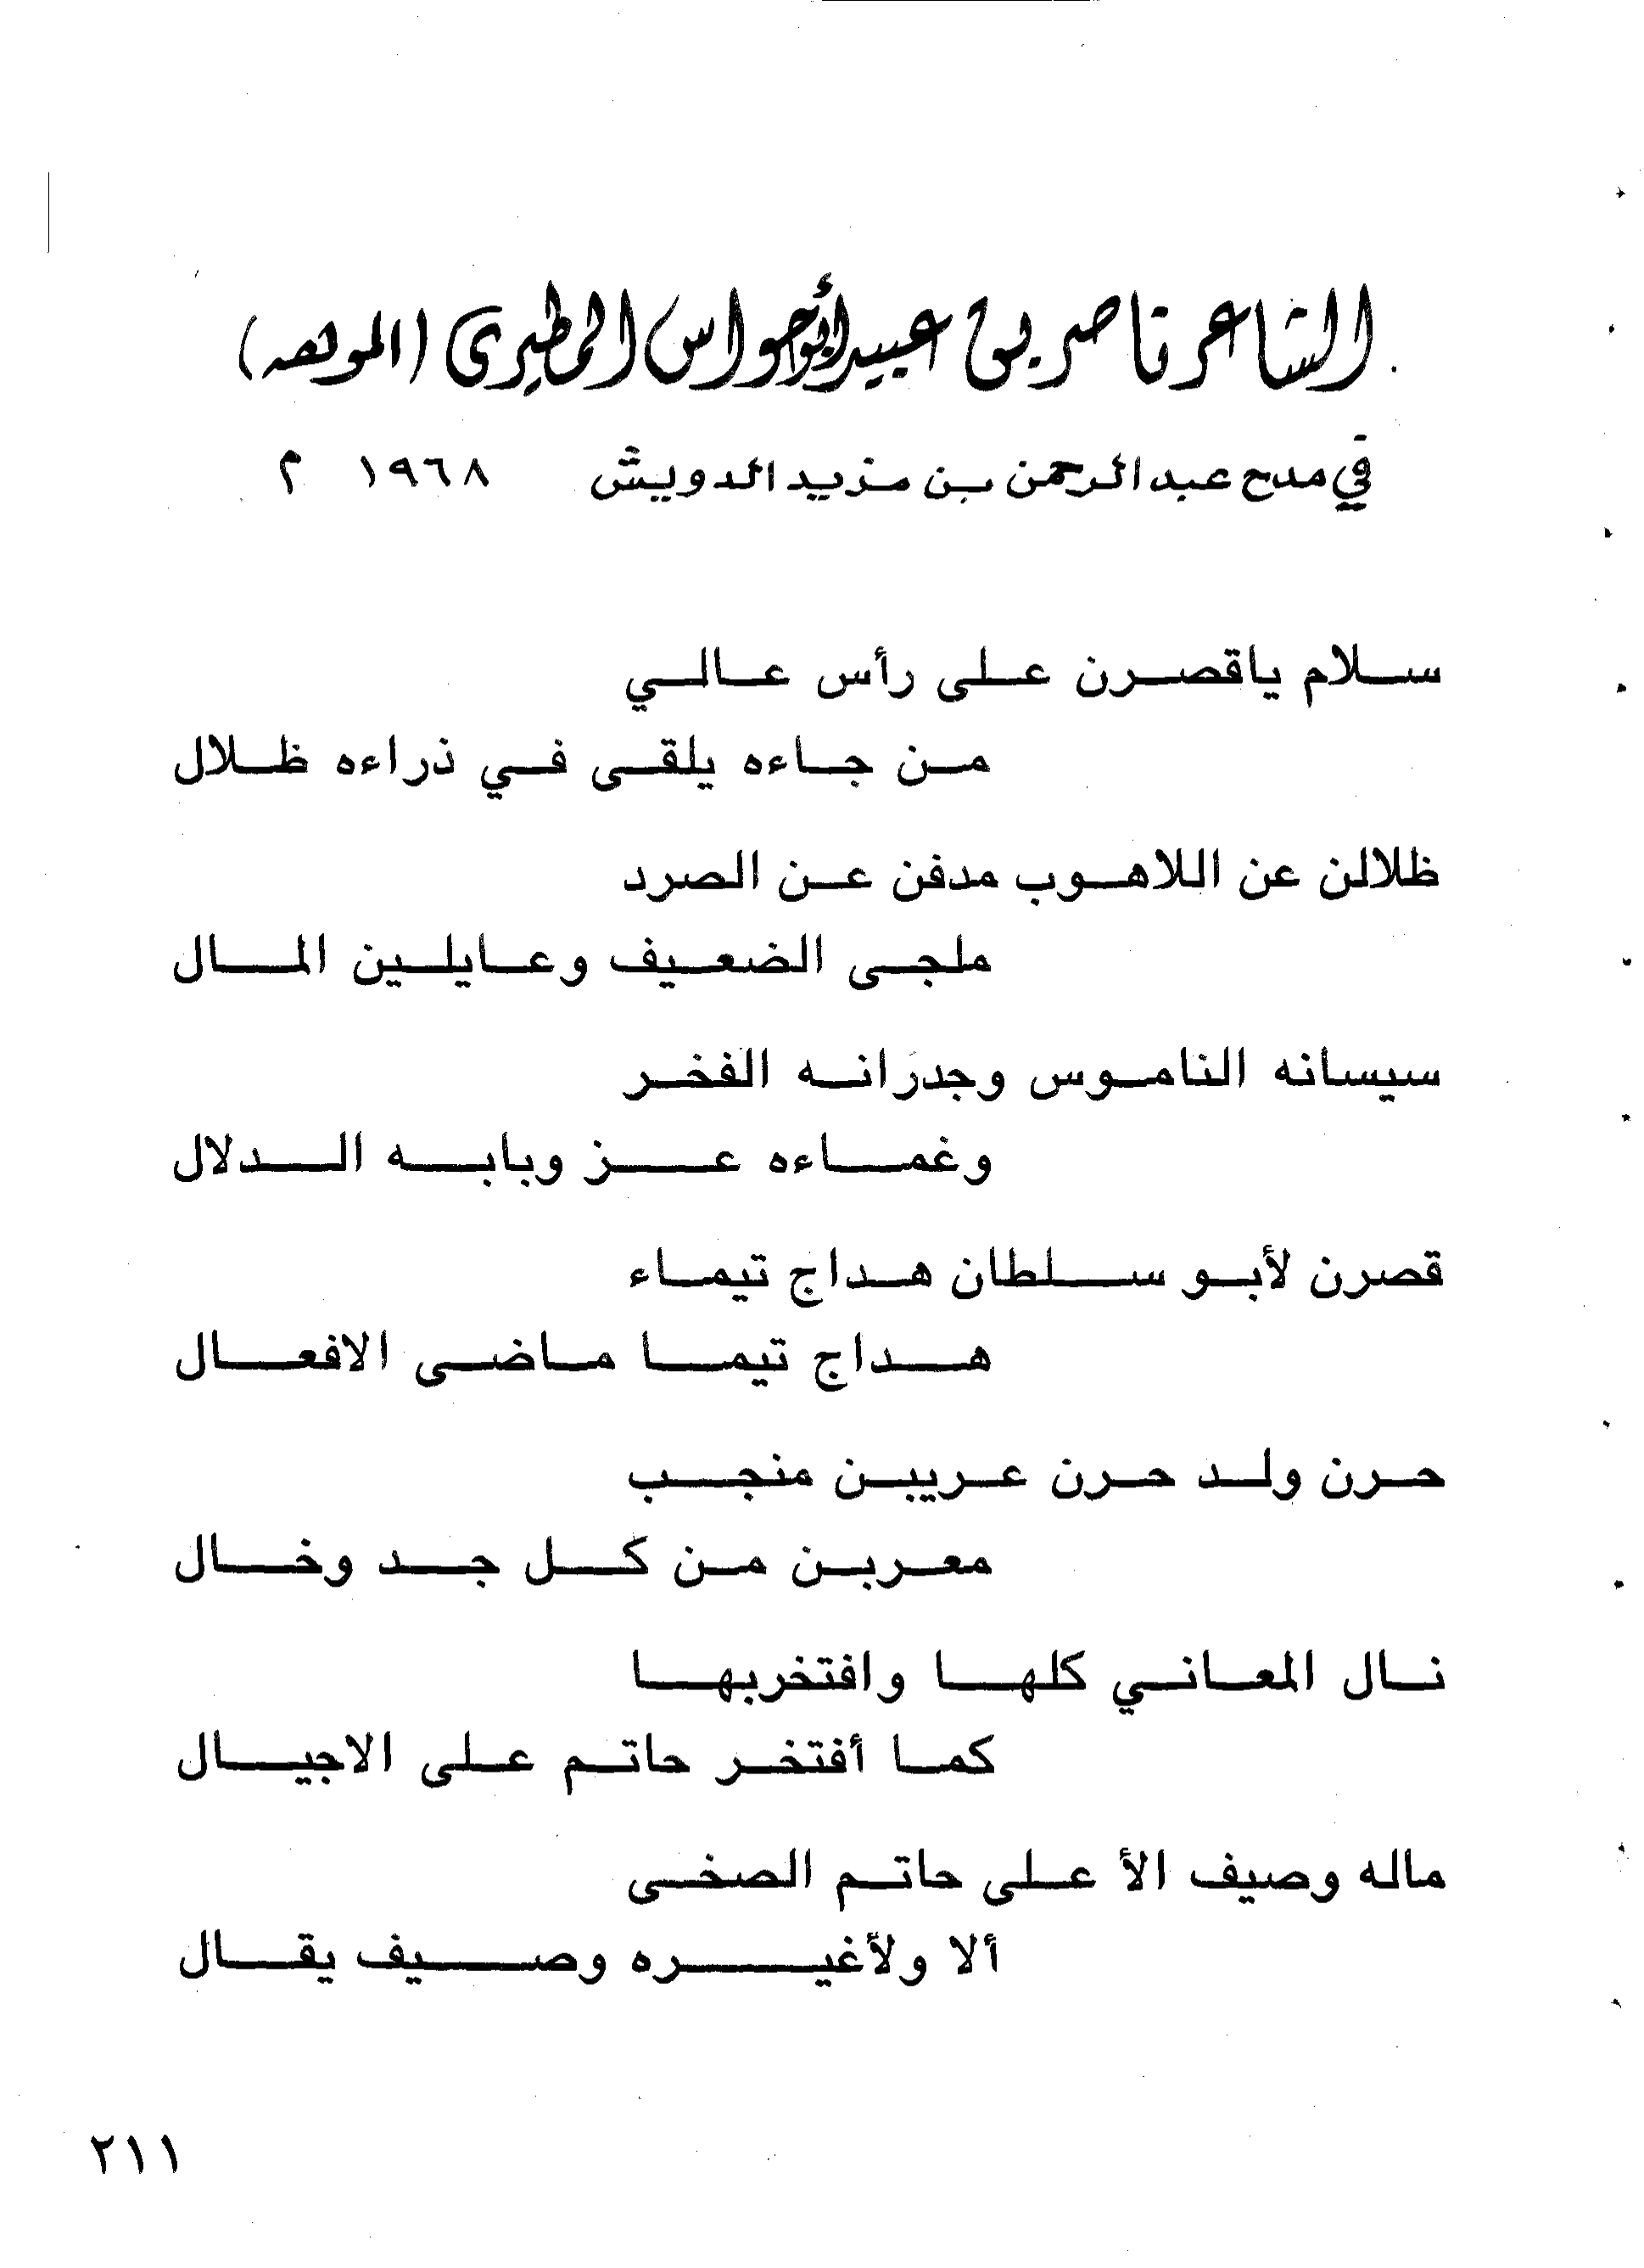 الشاعر ناصر بن عبيد أبو حواس المطيرى (الموهه)
في مدح عبد الرحمن بن مزيد الدويش ١٩٦٨ م
سلام ياقصرن على رأس عالي
من جاءه يلقى في ذراءه ظلال
ظلالن عن اللاهوب مدفن عن الصرد
ملجى الضعيف وعايلين المال
سيسانه الناموس وجدرانه الفخر
وغماءه عز وبابه الدلال
قصرن لأبو سلطان هداج تيماء
هداج تيما ماضى الافعال
حرن ولد حرن عريبن منجب
معربن من كل جد وخال
نال المعاني كلها وافتخربها
كما أفتخر حاتم على الاجيال
ماله وصيف الأ على حاتم الصخى
ألا ولأغيره وصيف يقال
٢١١